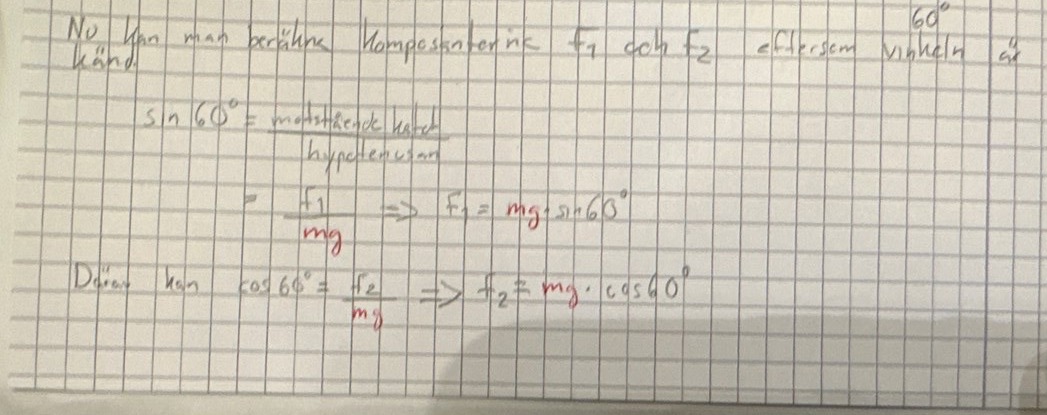 Nu kan man beräkna komposanterna F₁ och F₂ eftersom vinkeln 60° är
känd.
sin 60° = motstående katet
hypotenusan
= F₁ / mg ⇒ F₁ = mg · sin 60°
kan cos 60° = F₂ / mg ⇒ F₂ = mg · cos 60°